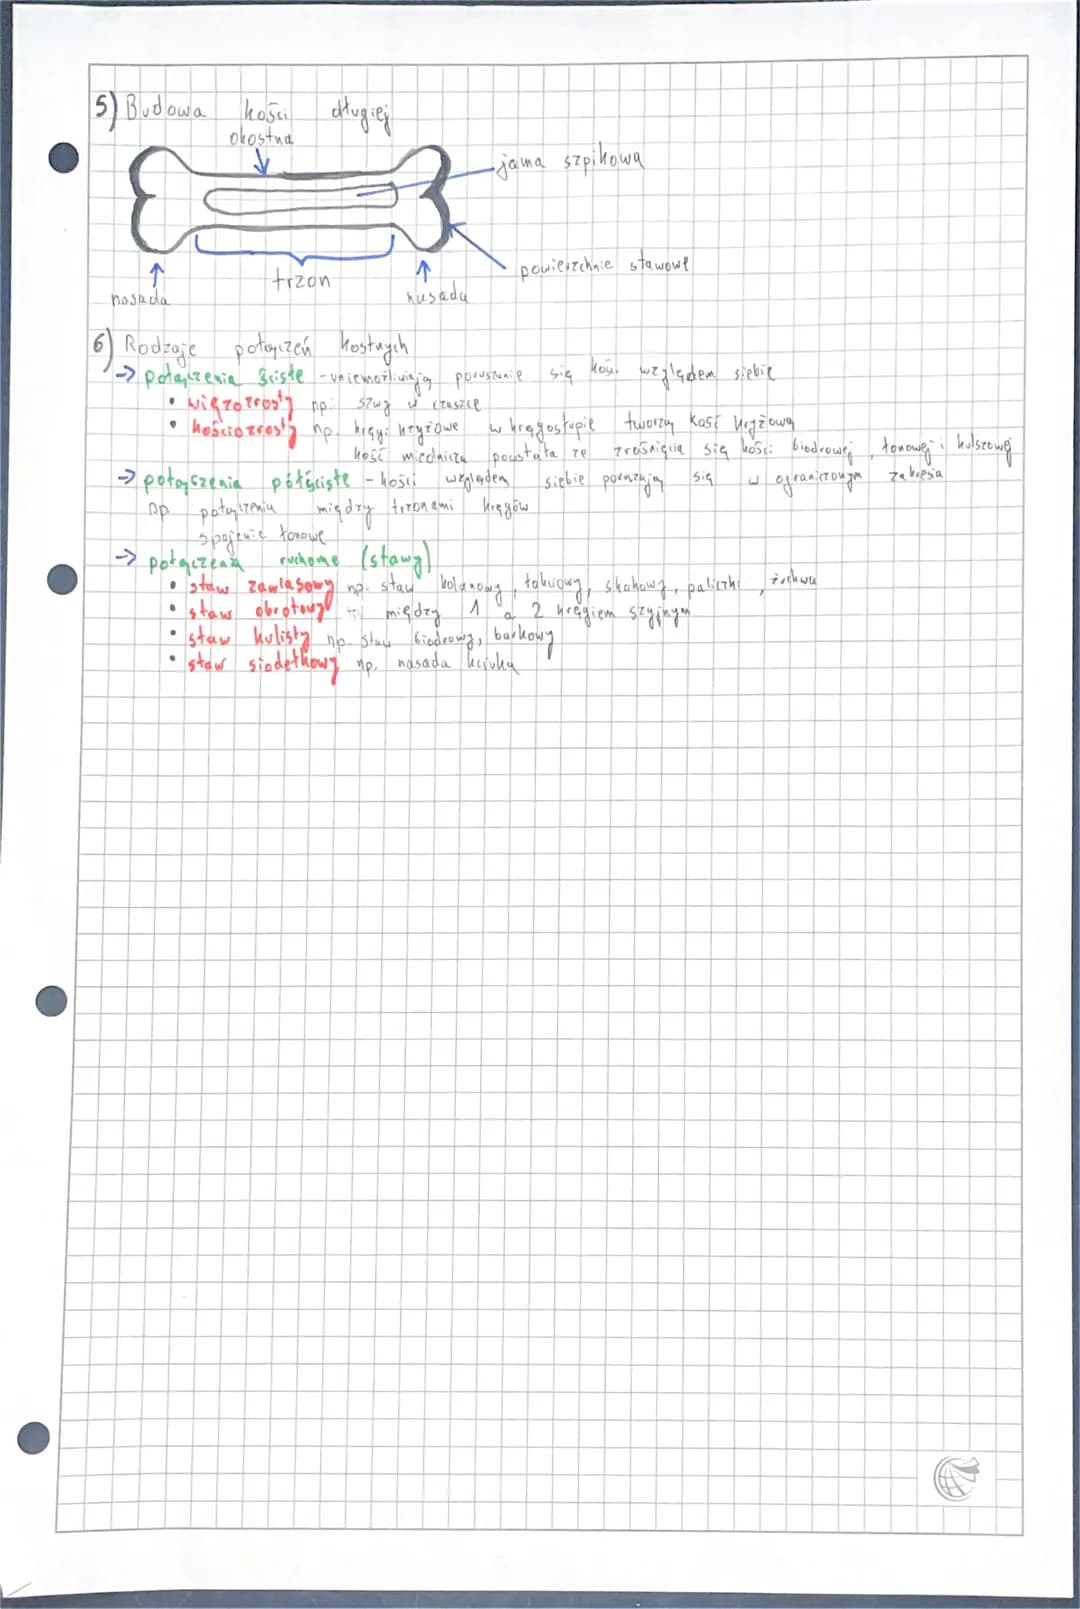 5) Budowa kości długiej
okostna
jama szpikowa
powierzchnie stawowe
trzon
nasada
nasada
6) Rodzaje połączeń kostnych
→ połączenia ścisłe - uniemożliwiają poruszanie się kości względem siebie
• więzozrosty np. szwy w czaszce
• kościozrosty np. kręgi krzyżowe w kręgosłupie tworzą kość krzyżową
kość miedniczą powstała ze zrośnięcia się kości biodrowej, łonowej i kulszowej
→ połączenia półścisłe - kości względem siebie poruszają się w ograniczonym zakresie
np. połączenia między trzonami kręgów
spojenie łonowe
→ połączenia ruchome (stawy)
• staw zawiasowy np. staw kolanowy, łokciowy, skokowy, paliczki, żuchwa
• staw obrotowy między 1 a 2 kręgiem szyjnym
• staw kulisty np. staw biodrowy, barkowy
• staw siodełkowy np. nasada kciuka